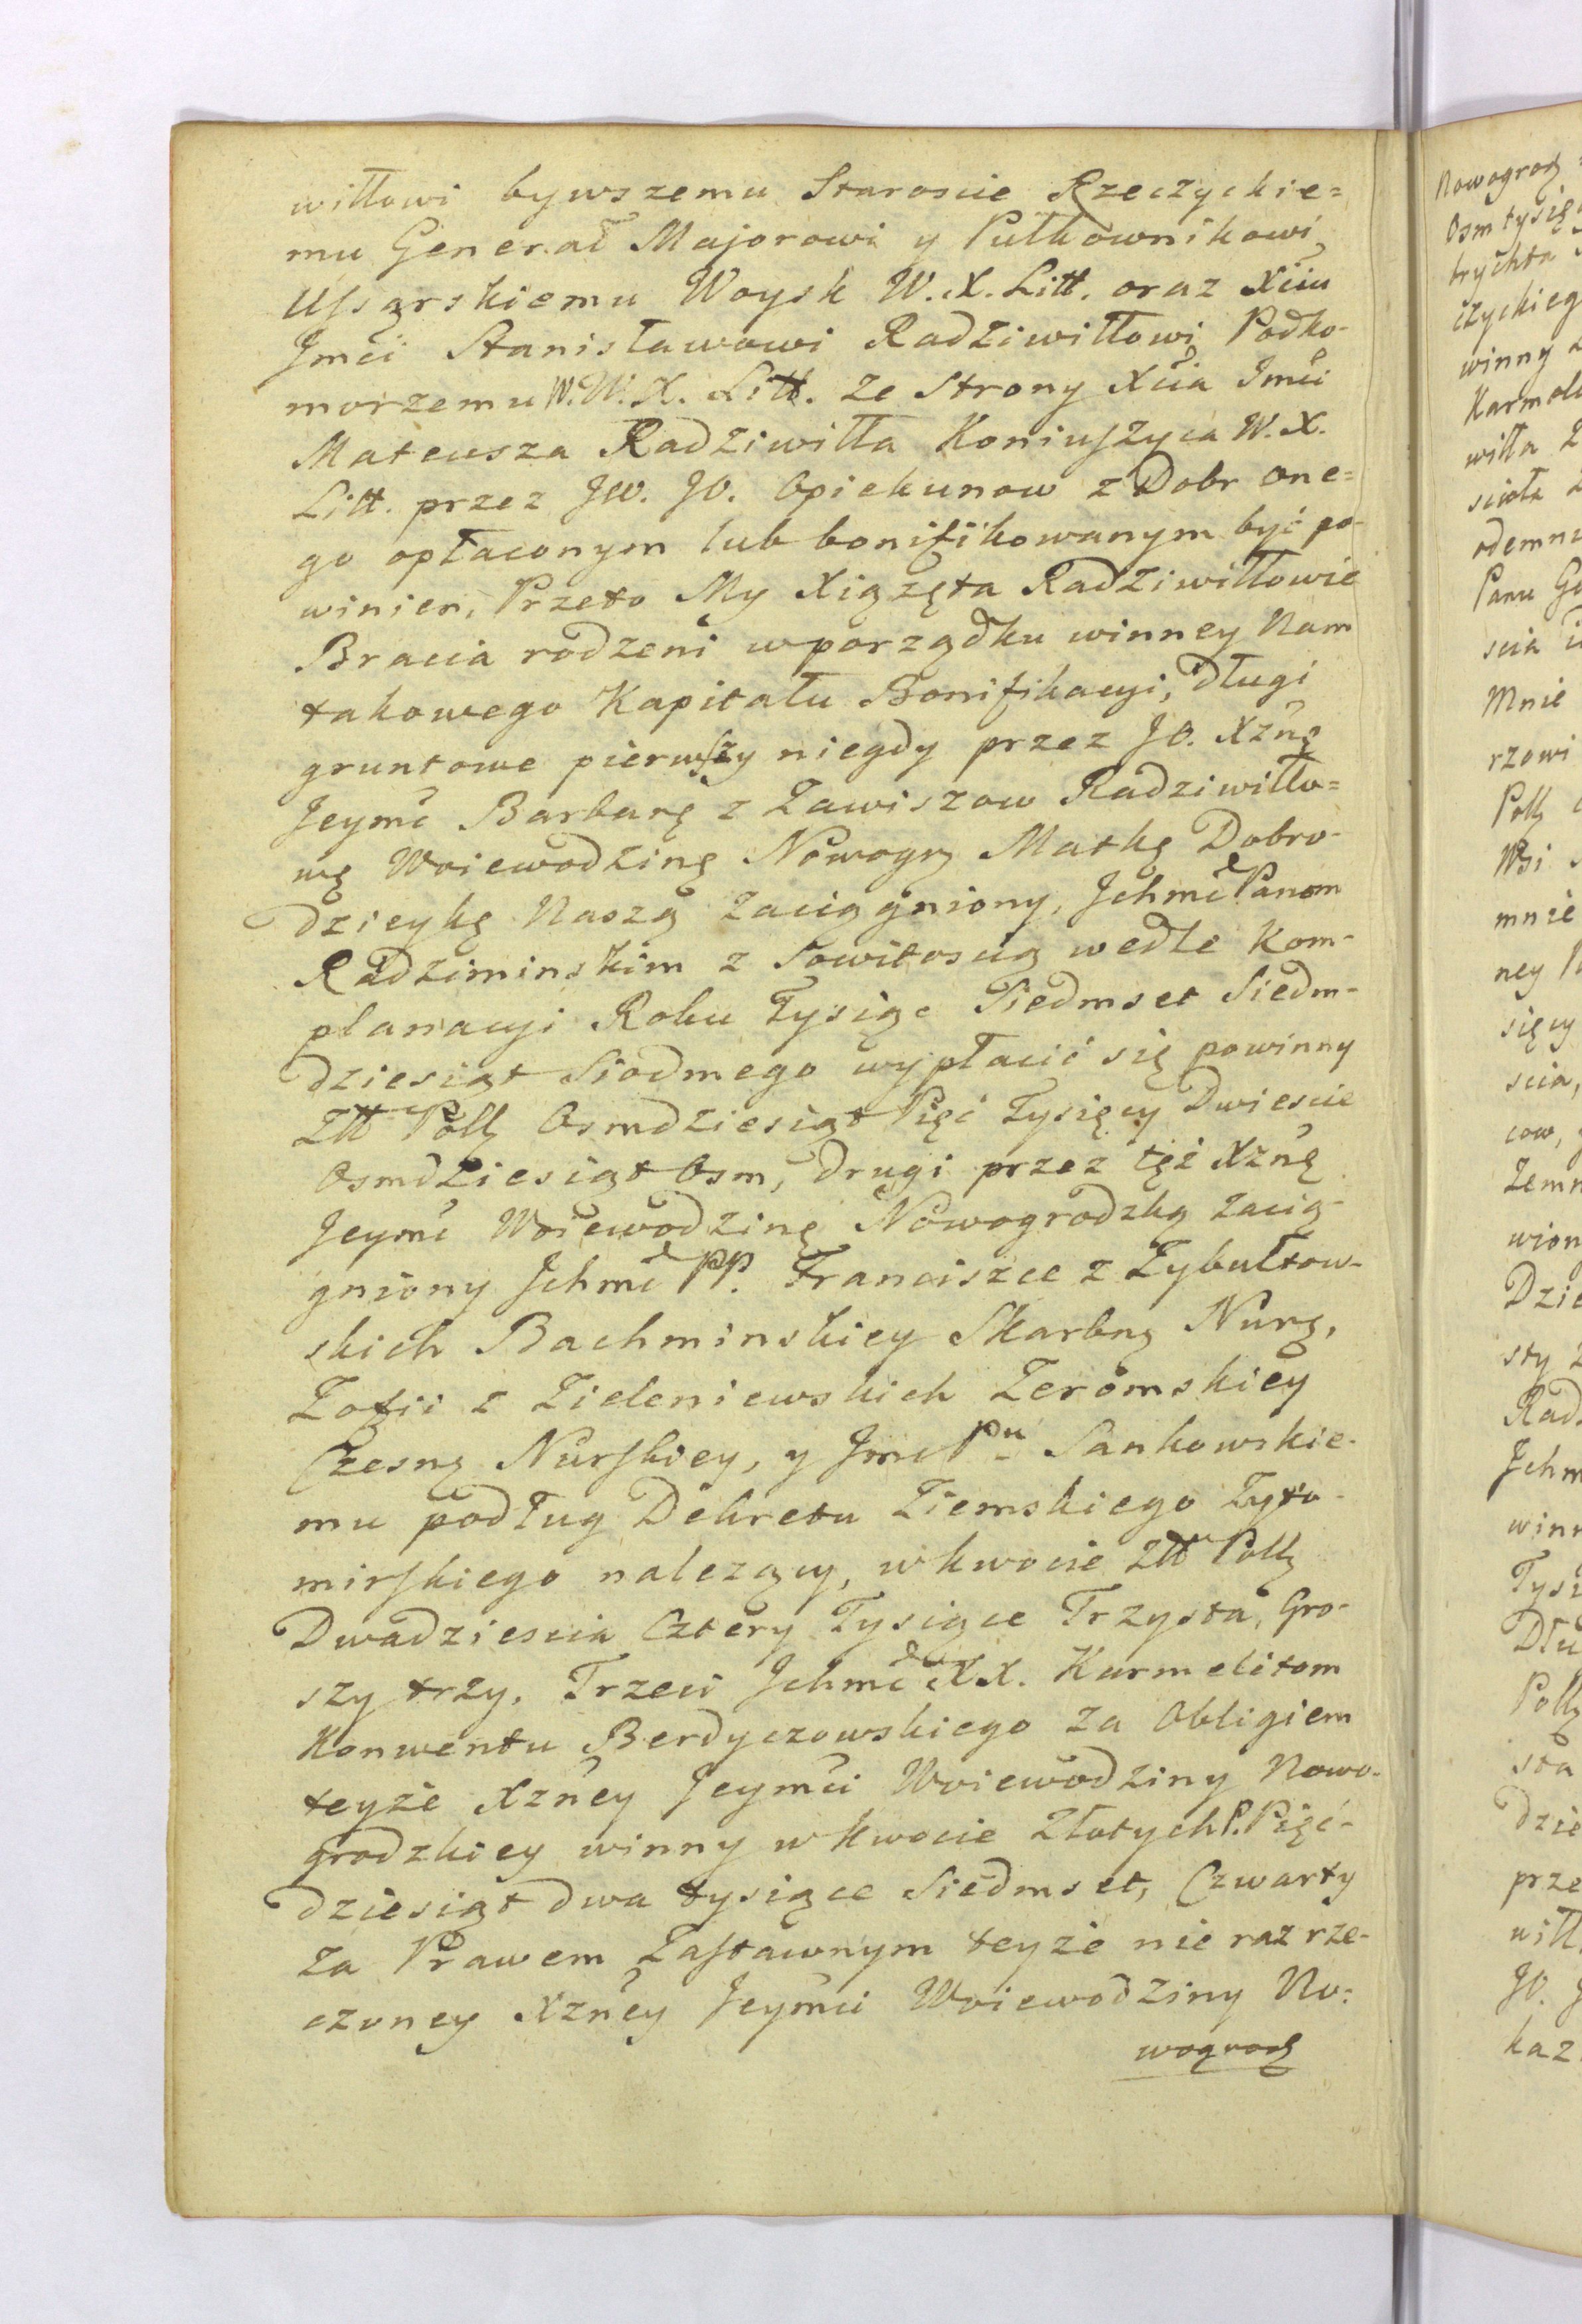 wiłłowi bywszemu Staroscie Rzeczyckie=
mu Generał Majorowi y Pułkownikowi
Ussarskiemu Woysk W. X. Litt. oraz Xciu
Jmci Stanisławowi Radziwiłłowi Podko-
morzemu W. W. X. Litt. ze Strony Xcia Jmci
Mateusza Radziwiłła Koniuszyca W. X.
Litt. przez JW. JO. Opiekunow z Dobr one=
go opłaconym lub bonifikowanym być po-
winien, Przeto My Xiążęta Radziwiłłowie
Bracia rodzeni w porządku winney Nam
takowego Kapitału Bonifikacyi, długi
gruntowe pierwszy niegdy przez JO. Xżnę
Jeymć Barbarę z Zawiszow Radziwiłło=
wę Woiewodzinę Nowogrz Matkę Dobro-
dzieykę Naszą zaciągniony, Jchmć Panom
Radziminskim z Sowitoscią wedle Kom-
planacyi Roku Tysiąc Siedmset Siedm-
dziesiąt Siodmego wypłacić się powinny
Złł Polł Osmdziesiąt Pięć Tysięcy Dwiescie
Osmdziesiąt Osm, drugi przez tęż Xżnę
Jeymć Woiewodzinę Nowogrodzką zacią-
gniony Jchmć PP. Franciszce z Zybułtow-
skich Bachminskiey Skarbnę Nurę,
Zofii z Zieleniewskich Zeromskiey
Czesnę Nurskiey, y Jmć Pu Sankowskie-
mu podług Dekretu Ziemskiego Zyto-
mirskiego nalezący, w kwocie Złł Polł
Dwadziescia Cztery Tysiące Trzysta, Gro-
szy trzy. Trzeci Jchmć XX. Karmelitom
Konwentu Berdyczowskiego za Obligiem
teyże Xżney Jeymci Woiewodziny Nowo-
grodzkiey winny w kwocie Złotych P. Pięć-
dziesiąt dwa tysiące Siedmset, Czwarty
za Prawem Zastawnym teyże nie raz rze-
czoney Xżney Jeymci Woiewodziny No=
wogrodz
Nowogrodz
Osm tysię
brychta
czyckieg
winny
Karmeli
wiłła
odemni
Panu Go
scia
Mnie
rzowi
Polł
mnie
ney
sięcy
scia,
cow,
Zemn
wion
Dzie
sty
Rad
Jchm
winn
Tysi
Dłu
Polł
sta
dzie
prze
wiłł
JO.
kaz